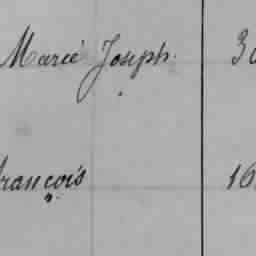 Marié Joseph. 30
François 16